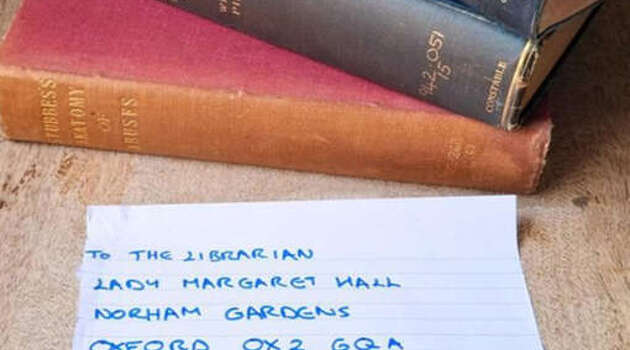 STUBBES'S
ANATOMY
OF
ABUSES
942.051
15
CONSTABLE
TO THE LIBRARIAN
LADY MARGARET HALL
NORHAM GARDENS
OXFORD OX2 GQA